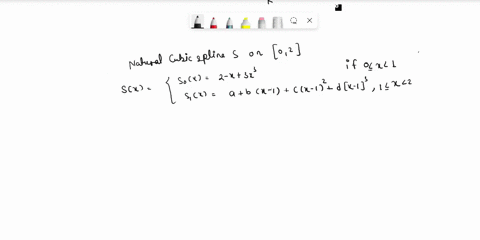 Natural Cubic spline S on [0,2]
S(x) = { S₀(x) = 2-x+3x³ if 0≤x<1
S₁(x) = a+b(x-1)+c(x-1)²+d[x-1]³, 1≤x<2